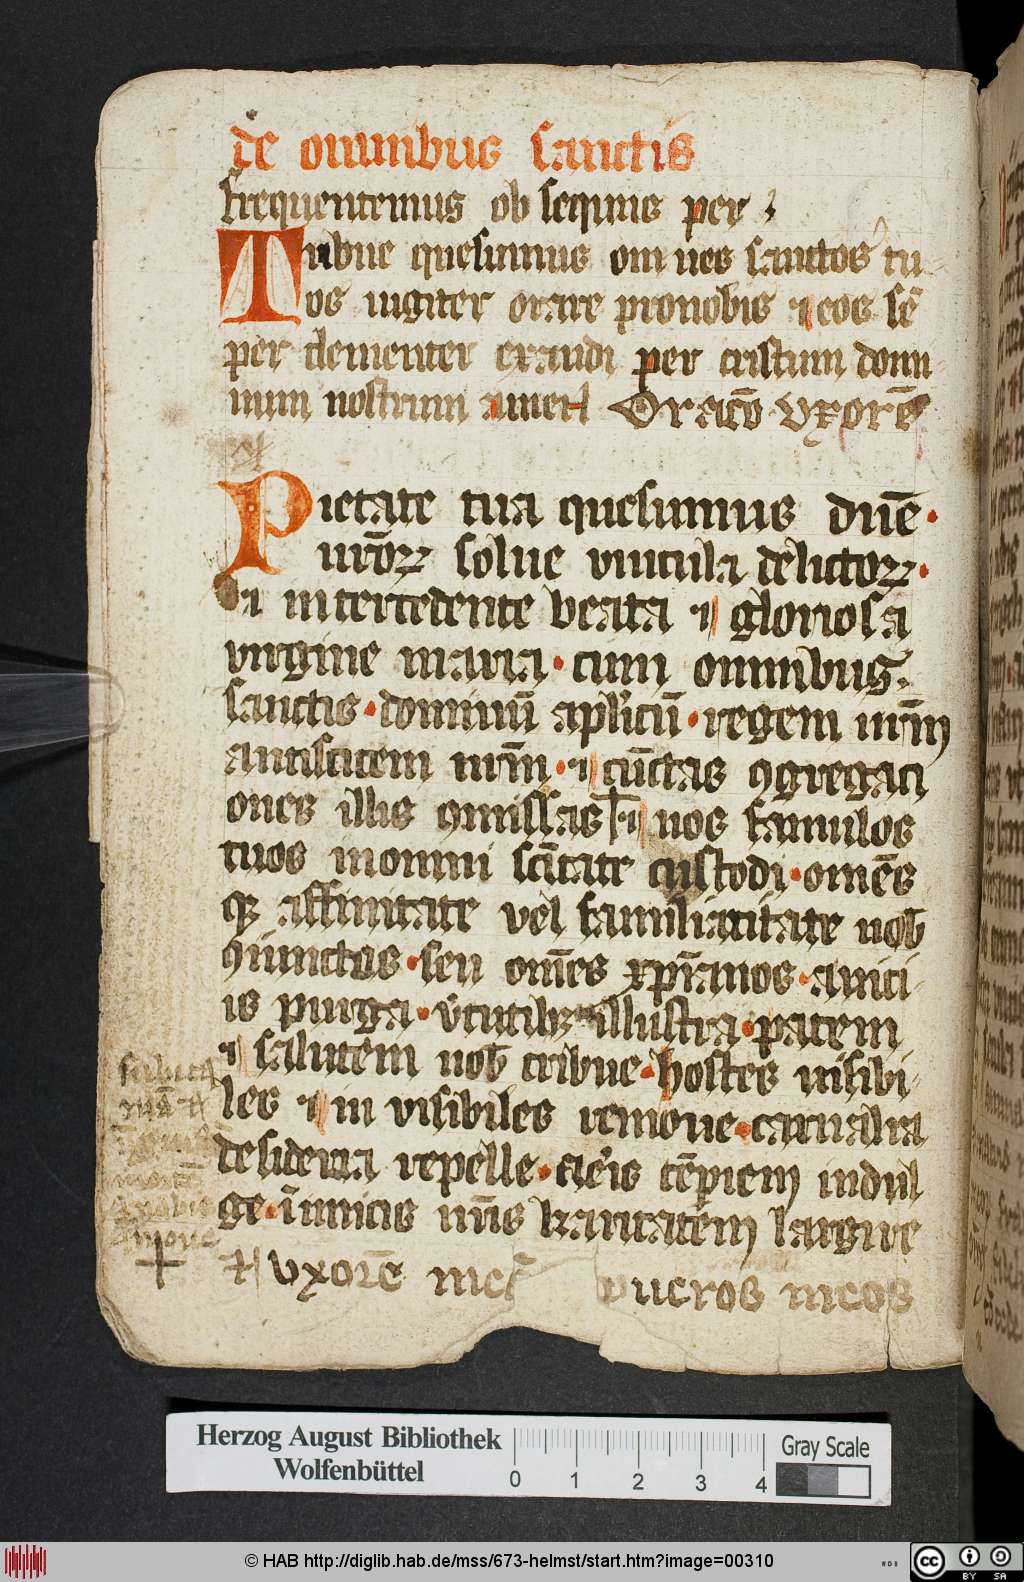 de omnibus sanctis
frequentemus obsequiis per
Tribue quesumus omnes sanctos tu
os iugiter orare pro nobis ⁊ eos sē
per clementer exaudi per cristum domi
num nostrum amen Oracō Uxorē
Pietate tua quesumus dn̄e
nr̄oꝝ solue vincula delictoꝝ
⁊ intercedente beata ⁊ gloriosa
virgine maria cum omnibus
sanctis dominū apl'icū regem nr̄m
antistitem nr̄m ⁊ cūctas ꝯgregaci
ones illis ꝯmissas ⁊ nos famulos
tuos in omni sc̄itate custodi omēs
qꝫ affinitate vel familiaritate nob̄
ꝯiunctos seu om̄es xp̄ianos a vici
is purga v̄tutibꝫ illustra patem
⁊ salutem nob̄ tribue hostes visibi
les ⁊ in visibiles remoue carnalia
desideria repelle aeris tēpiem indul
ge īimicis nr̄is karitatem largire
⁊ uxorē me pueros meos
Herzog August Bibliothek
Wolfenbüttel
0 1 2 3 4
Gray Scale
© HAB http://diglib.hab.de/mss/673-helmst/start.htm?image=00310
cc BY SA